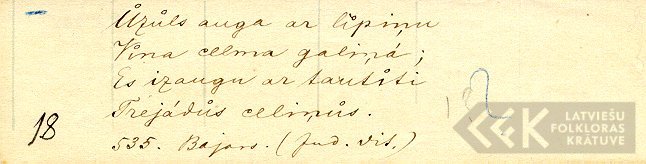 Ůzůls auga ar līpiņu
Vina celma galiņá;
Es izaugu ar tautīti
Trejádůs celiņůs.
18
535. Bajars. (Jud. Vit.)
LATVIEŠU
FOLKLORAS
KRĀTUVE